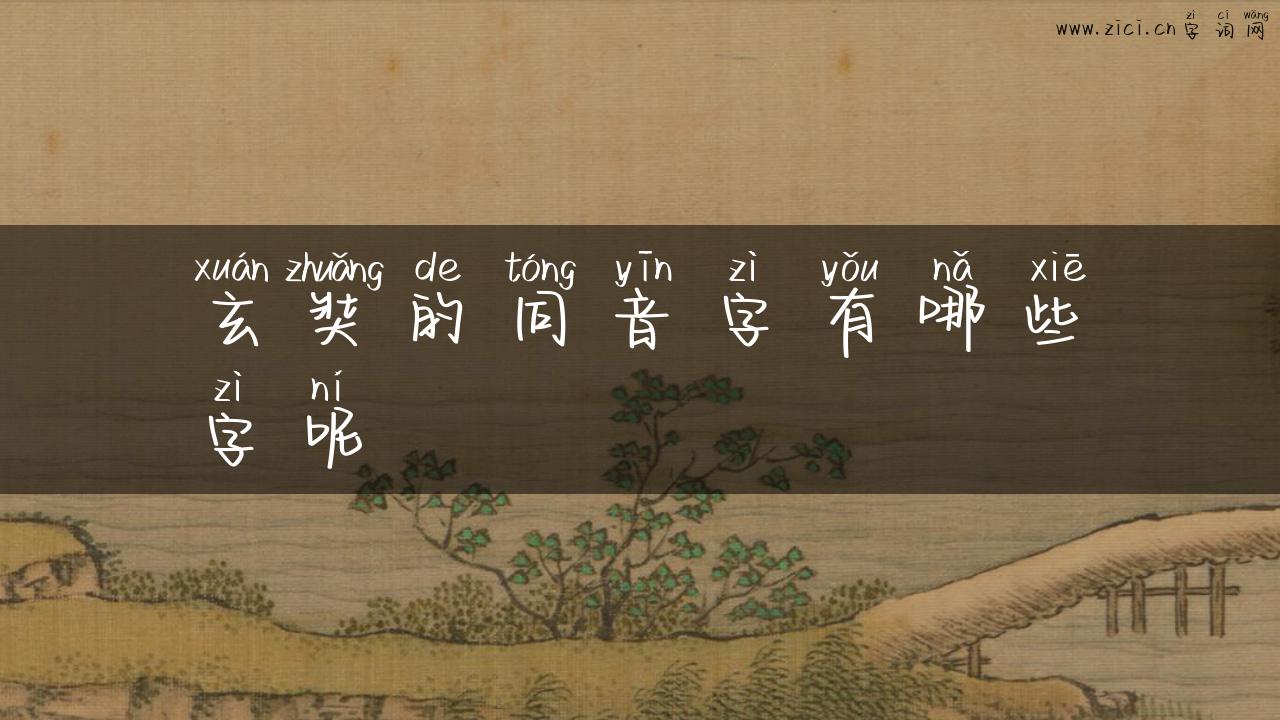 zì cí wǎng
www.zici.cn 字词网
xuán zhuǎng de tóng yīn zì yǒu nǎ xiē
玄奘的同音字有哪些
zì ní
字呢